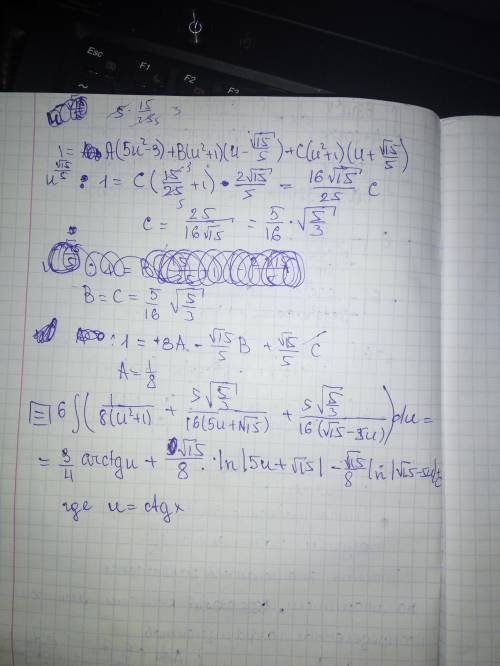 Esc
F1
F2
F3
5 · 15/25 3
1 = A(5u²-3)+B(u²+1)(u-√15/5)+C(u²+1)(u+√15/5)
u √15/5 : 1 = C(15/25+1)·2√15/5 = 16√15/25 C
C = 25/(16√15) = 5/16 · √(5/3)
B = C = 5/16 √(5/3)
: 1 = +8A - √15/5 B + √15/5 C
A = 1/8
≡ 6∫(1/(8(u²+1)) + 5√(5/3)/(16(5u+√15)) + 5√(5/3)/(16(√15-5u)))du =
= 3/4 arctgu + √15/8 · ln|5u+√15| - √15/8 ln|√15-5u|+C
где u = ctgx